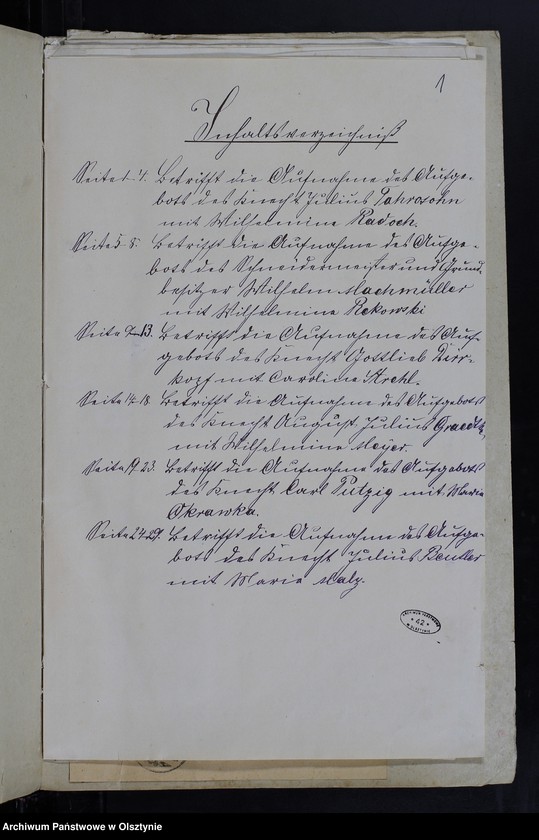 1
Inhaltsverzeichniß
Seite 1-4. Betrifft die Aufnahme des Aufge-
bots des Knecht Julius
mit Wilhelmine Radoch.
Seite 5-8. Betrifft die Aufnahme des Aufge-
bots des Schneidermeister und Grund-
besitzer Wilhelm Machmüller
mit Wilhelmine Rekowski
Seite 13. Betrifft die Aufnahme des Auf-
gebots des Knecht Gottlieb Dirr-
kopf mit Caroline Krehl.
Seite 14-18. Betrifft die Aufnahme des Aufgebots
des Knecht August Julius
mit Wilhelmine Meyer.
Seite 19-23. Betrifft die Aufnahme des Aufgebots
des Knecht Carl Putzig mit Maria
Okrawka.
Seite 24-29. Betrifft die Aufnahme des Aufge-
bots des Knecht Julius Beutler
mit Maria Malz.
ARCHIWUM PAŃSTWOWE
* 42 *
W OLSZTYNIE
Archiwum Państwowe w Olsztynie